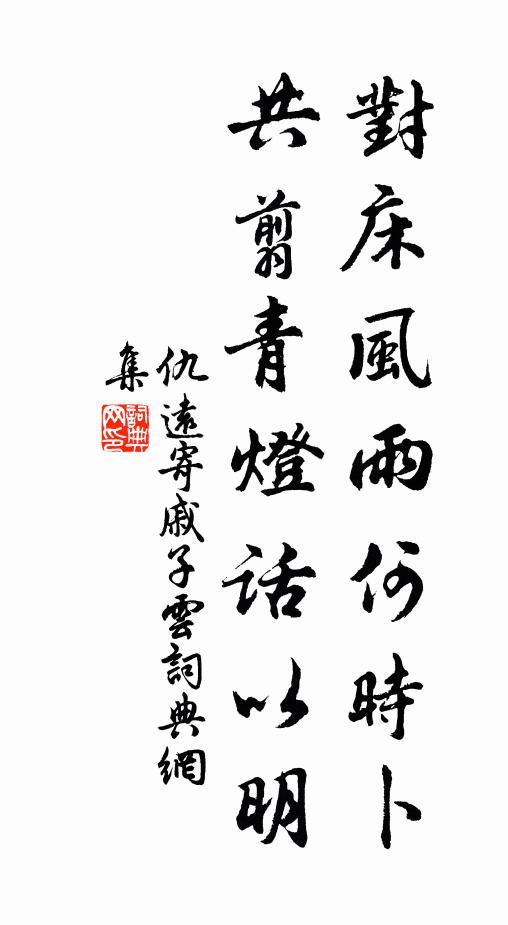 對床風雨何時卜
共翦青燈話以明
仇遠寄戚子雲詞典網
集
詞典网印